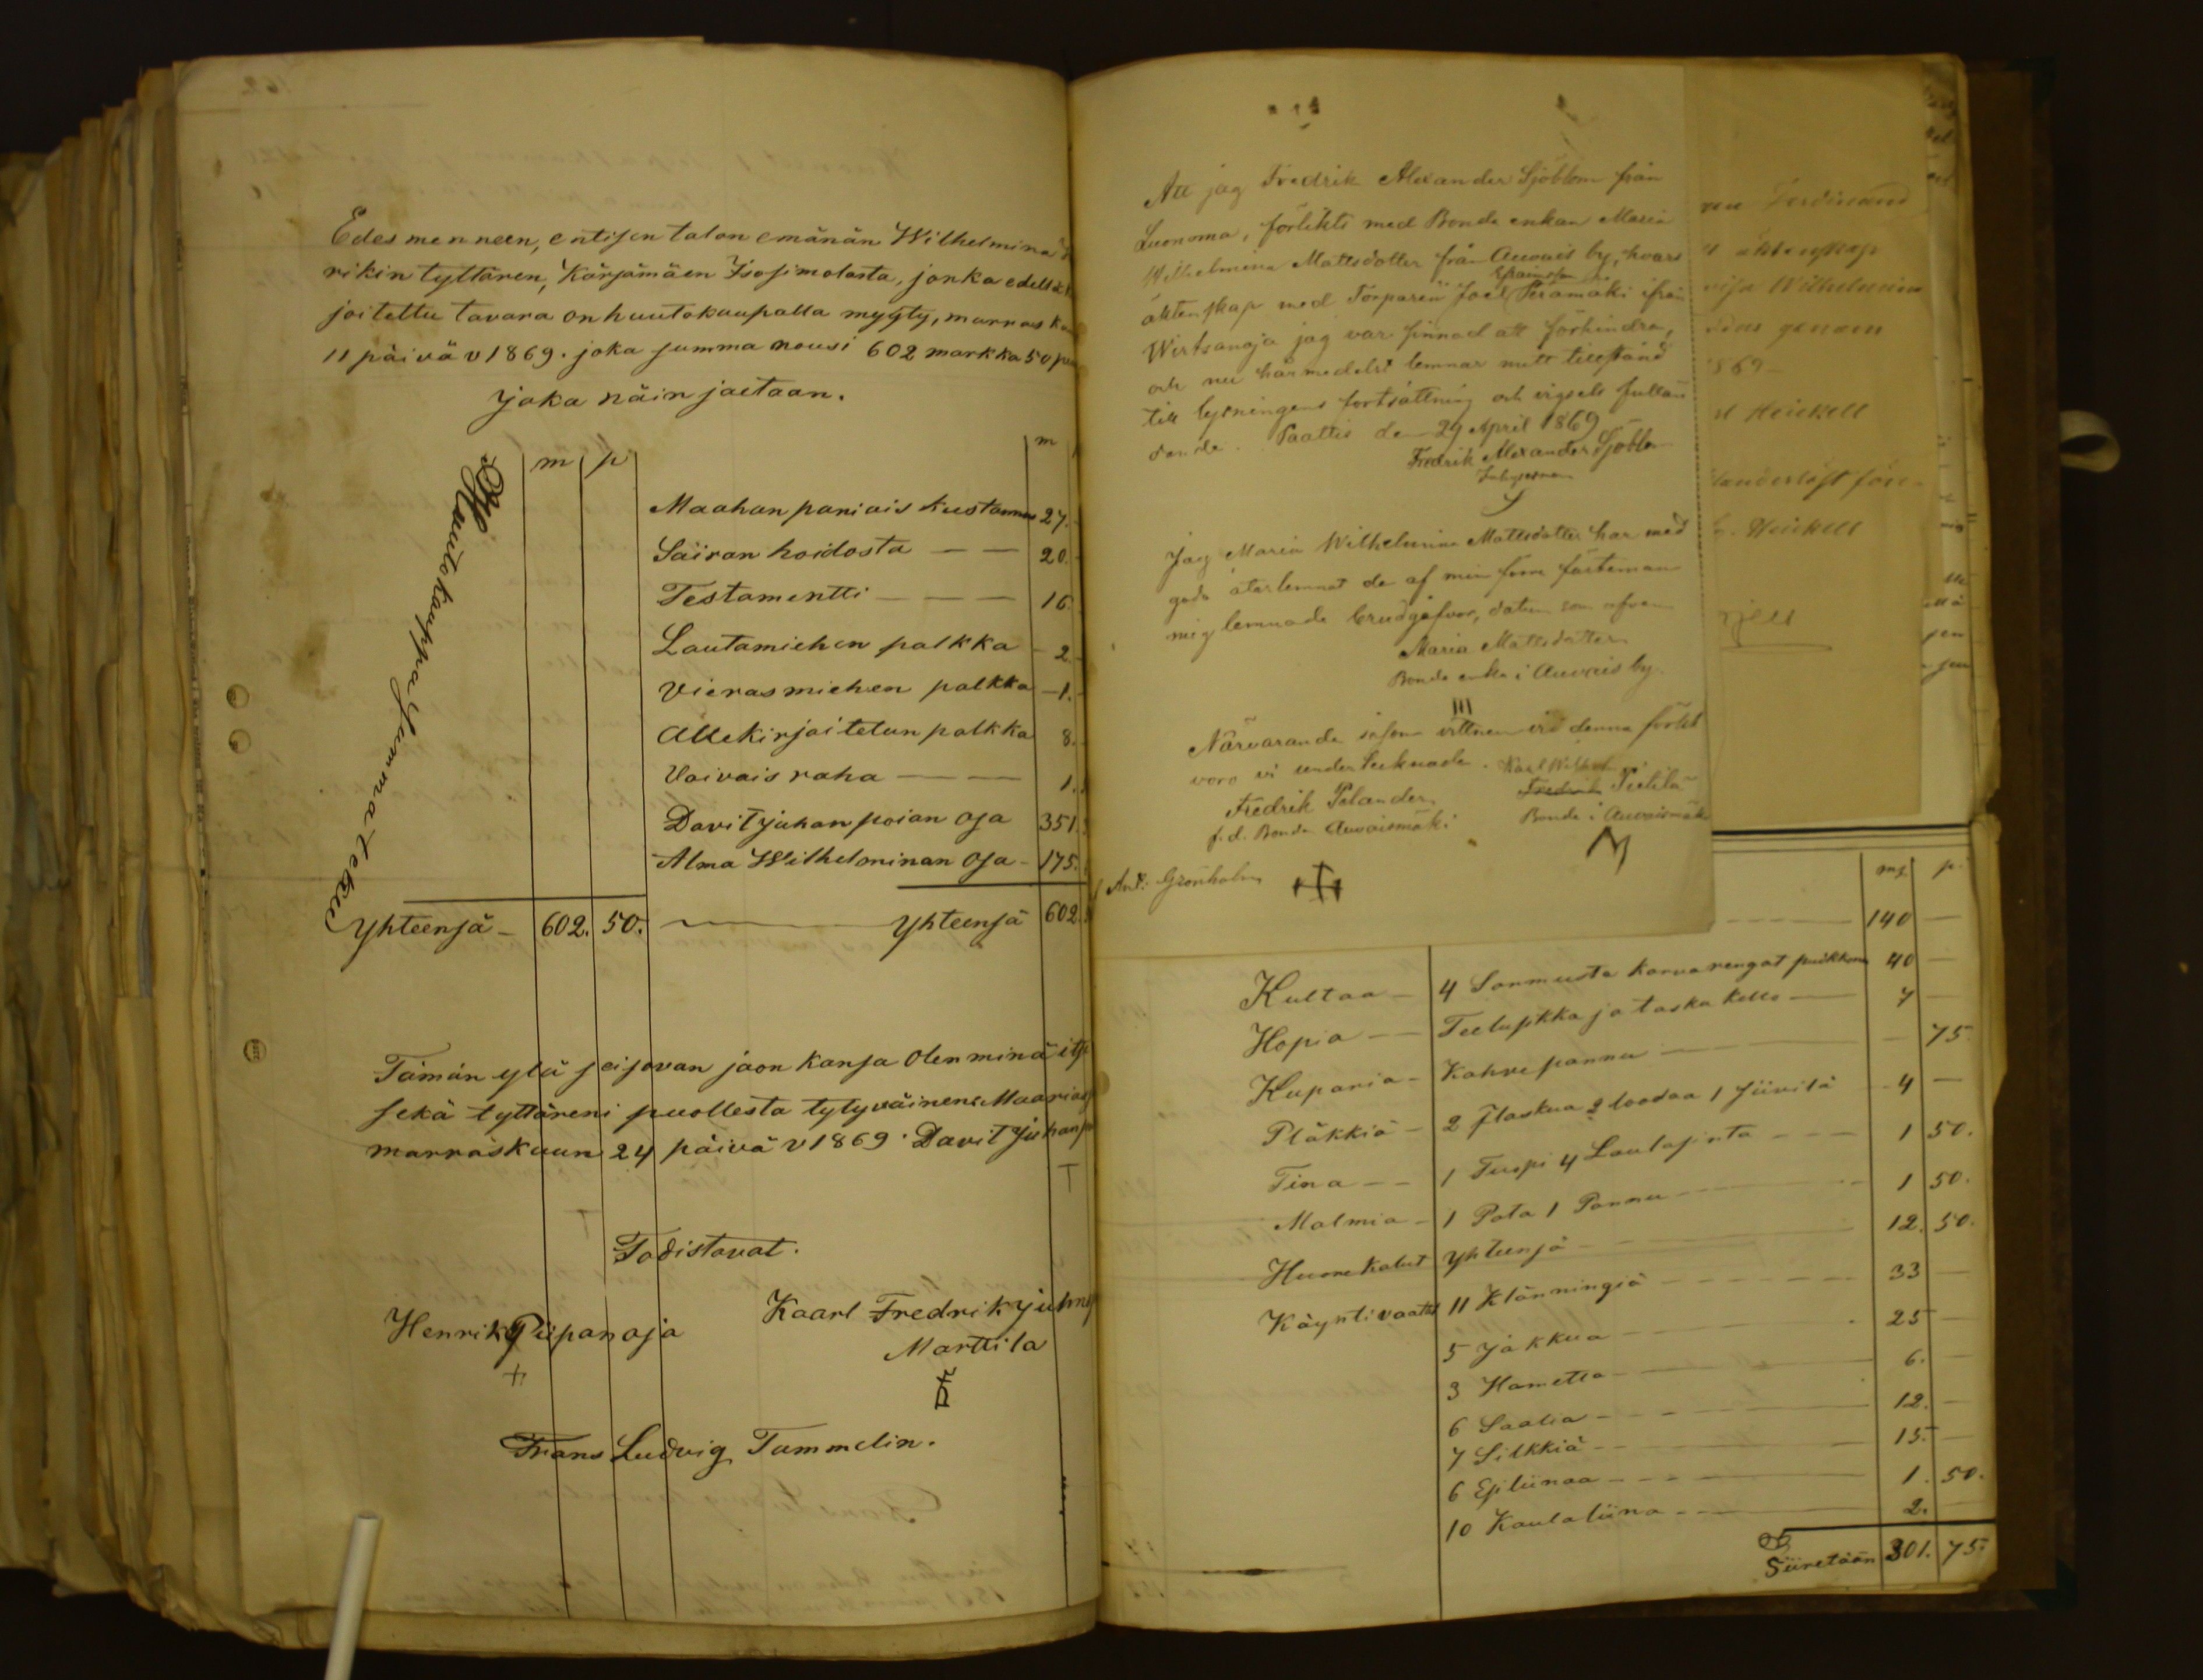 Edes men neen, entisen talon emänän Wilhelmina
rikin tyttären, Kärsämäen Isosimolasta, jonka
joitettu tavara on huutokaupalla myyty, marras
11 päivä v 1869. joka summa nousi 602 markka 50
joka näin jaetaan.
m p m
Huutokauppa Summa tekee
Maahan paniais kustannus 27.
Sairan hoidosta — — 20.
Testamentti — — — 16.
Lautamiehen palkka – 2.
Vieras miehen palkka – 1.
Allekirjoitetun palkka 8.
Vaivais raha — — 1.
Davit Juhan poian osa 351.
Alma Wilhelminan osa – 175.
Yhteensä – 602. 50. — Yhteensä 602.
Tämän ylä seisovan jaon kansa olen minä itse
sekä tyttäreni puollesta tytyväinen Maarias
marraskuun 24 päivä v 1869. Davit Juhanp
T
Todistavat.
Henrik Piipanoja
Kaarl Fredrik Juhnp
Marttila
Frans Ludvig Tammelin.
Att jag Fredrik Alexander Sjöblom från
Luonoma, förlikts med Bonde enkan Maria
Wilhelmina Mattsdotter från Auvais by, hvars
äktenskap med Torparen Joel Efraimson Perämäki ifrån
Wirtsanoja jag var sinnad att förhindra,
och nu härmedelst lemnar mitt tillstånd
till lysningens fortsättning och vigsels fullän
dande. Paattis den 29 April 1869
Fredrik Alexander Sjöblom
Jag Maria Wilhelmina Mattsdotter har med
godo återlemnat de af min förra fästeman
mig lemnade brudgåfvor, datum som ofvan
Maria Mattsdotter
Bonde enka i Auvais by.
III
Närvarande såsom vittnen vid denna förlik
voro vi undertecknade.
Fredrik Pelander
f.d. Bonde Auvaismäki
Karl Wilhelm
Fredrik Peltilä
Bonde i Auvaismäki
Ant: Grönholm
Ferdinand
äktenskap
Wilhelmina
genom
1869
Heickell
Heickell
mk p.
140 —
Kultaa – 4 Sormusta korvarengat 40 —
Hopia — Teelusikka ja tasku kello — 7 —
Kuparia – Kahvepannu — — 75.
Pläkkiä – 2 flaskua 2 loodaa 1 Siivilä – 4 —
Tina — 1 Tuopi 4 Lautasista — 1 50.
Malmia – 1 Pata 1 Pannu — 1 50.
Huonekalut yhteensä — 12. 50.
Käyntivaatet 11 Klänningiä — 33 —
5 Jakkua — 25 —
3 Hametta — 6. —
6 Saalia — 12. —
7 Silkkiä — 15. —
6 Esiliinaa — 1. 50.
10 Kaulaliina — 2.
Siiretään 301. 75.